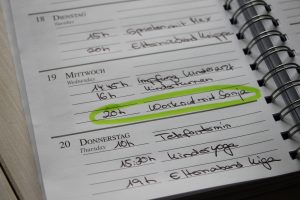 18 DIENSTAG
Tuesday
15h Spielen mit Max
20h Elternabend Krippe
19 MITTWOCH
Wednesday
14:45h Impfung Kinderarzt
16h Kinderturnen
20h Workout mit Sonja
20 DONNERSTAG
Thursday
10h Telefontermin
15:30h Kinderyoga
19h Elternabend Kiga